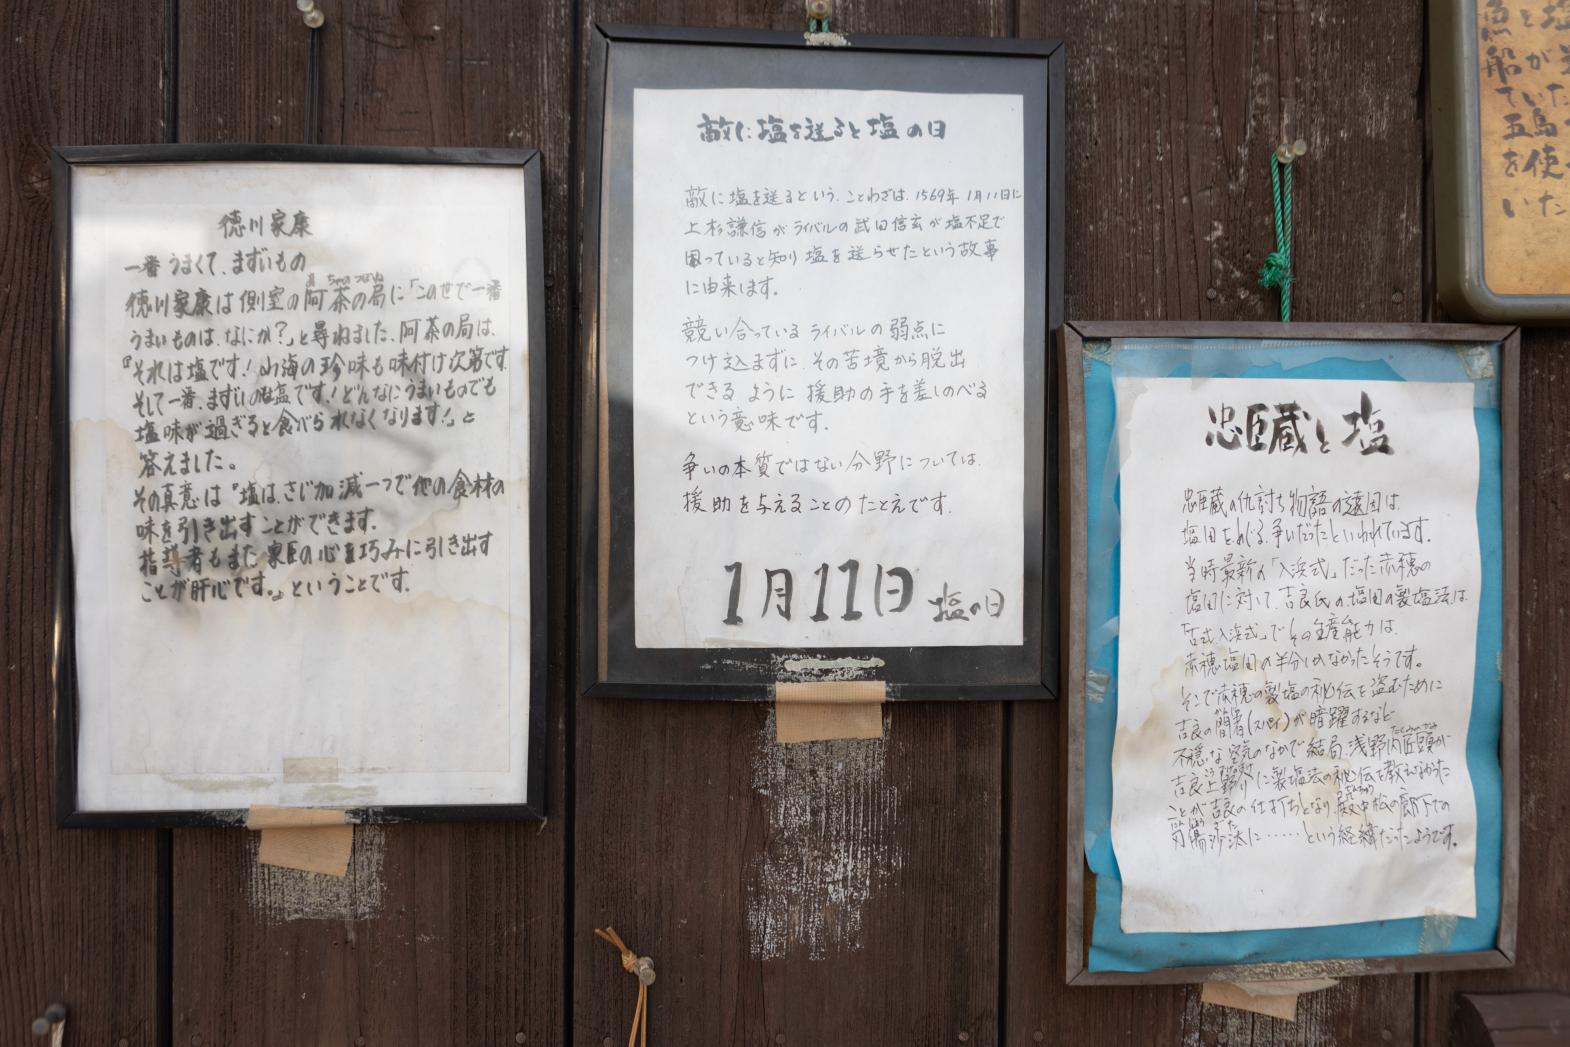 徳川家康
一番うまくて、まずいもの
徳川家康は側室の阿茶の局に「このせで一番
あ ちゃの つぼね
うまいものは、なにか?」と尋ねました。阿茶の局は、
『それは塩です!山海の珍味も味付け次第です
そして一番、まずいのは塩です!どんなにうまいものでも
塩味が過ぎると食べられなくなります!』と
答えました。
その真意は『塩は、さじ加減一つで他の食材の
味を引き出すことができます。
指導者もまた家臣の心を巧みに引き出す
ことが肝心です。』ということです。
敵に塩を送ると塩の日
敵に塩を送るという、ことわざは、1569年1月11日に
上杉謙信がライバルの武田信玄が塩不足で
困っていると知り塩を送らせたという故事
に由来します。
競い合っているライバルの弱点に
つけ込まずに、その苦境から脱出
できるように援助の手を差しのべる
という意味です。
争いの本質ではない分野については、
援助を与えることのたとえです。
1月11日 塩の日
忠臣蔵と塩
忠臣蔵の仇討ち物語の遠因は、
塩田をめぐる争いだったといわれています。
当時最新の「入浜式」だった赤穂の
塩田に対して、吉良氏の塩田の製塩法は
「古式入浜式」でその生産能力は、
赤穂塩田の半分しかなかったそうです。
そこで赤穂の製塩の秘伝を盗むために
吉良の間者(スパイ)が暗躍するなど
不穏な空気のなかで結局、浅野内匠頭が
吉良上野介に製塩法の秘伝を教えなかった
ことが吉良の仕打ちとなり殿中松の廊下での
刃傷沙汰に……という経緯だったようです。
魚と塩
船が
ていた
五島
を使
いた